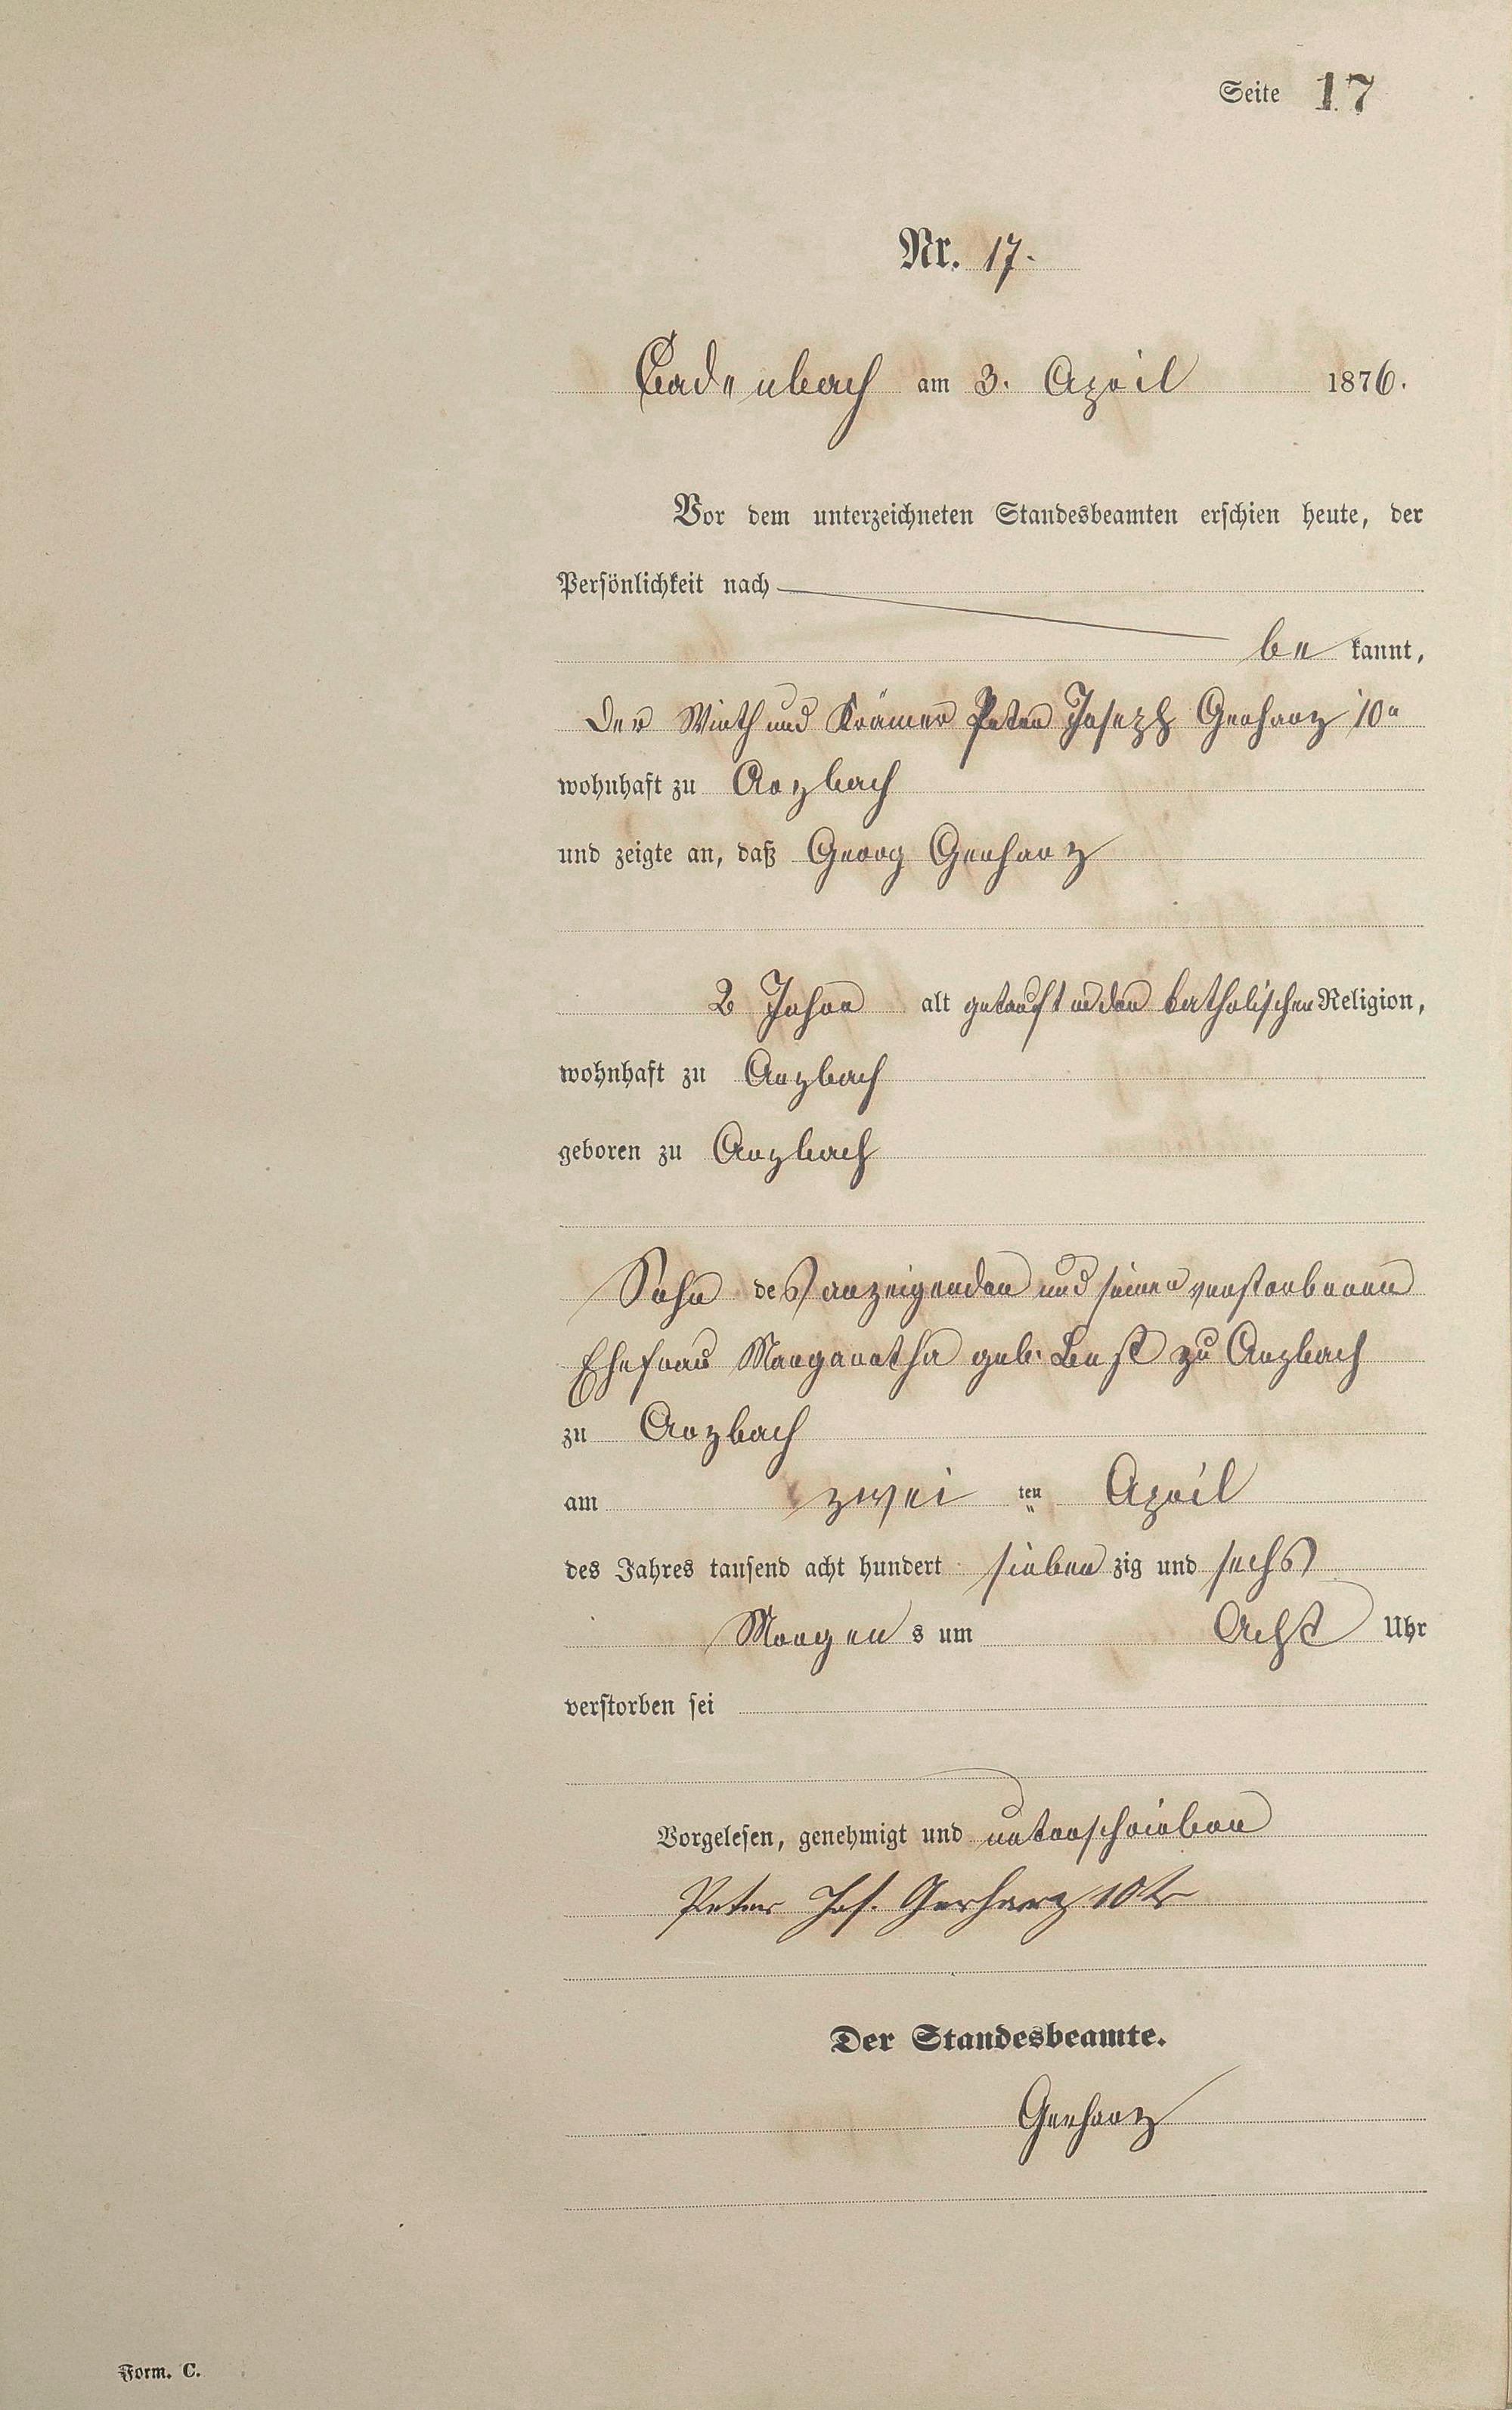 Seite 17
Nr. 17.
Cadenbach am 3. April 1876.
Vor dem unterzeichneten Standesbeamten erschien heute, der
Persönlichkeit nach
be kannt,
der Wirth und Krämer Peter Joseph Gerharz 10r
wohnhaft zu Arzbach
und zeigte an, daß Georg Gerharz
2 Jahre alt getauft in der katholischen Religion,
wohnhaft zu Arzbach
geboren zu Arzbach
Sohn des anzeigenden und seiner verstorbenen
Ehefrau Margaretha geb. zu Arzbach
zu Arzbach
am zwei ten April
des Jahres tausend acht hundert sieben zig und sechs
Morgen s um Acht Uhr
verstorben sei
Vorgelesen, genehmigt und unterschrieben
Peter Jos. Gerharz 10tr
Der Standesbeamte.
Gerharz
Form. C.